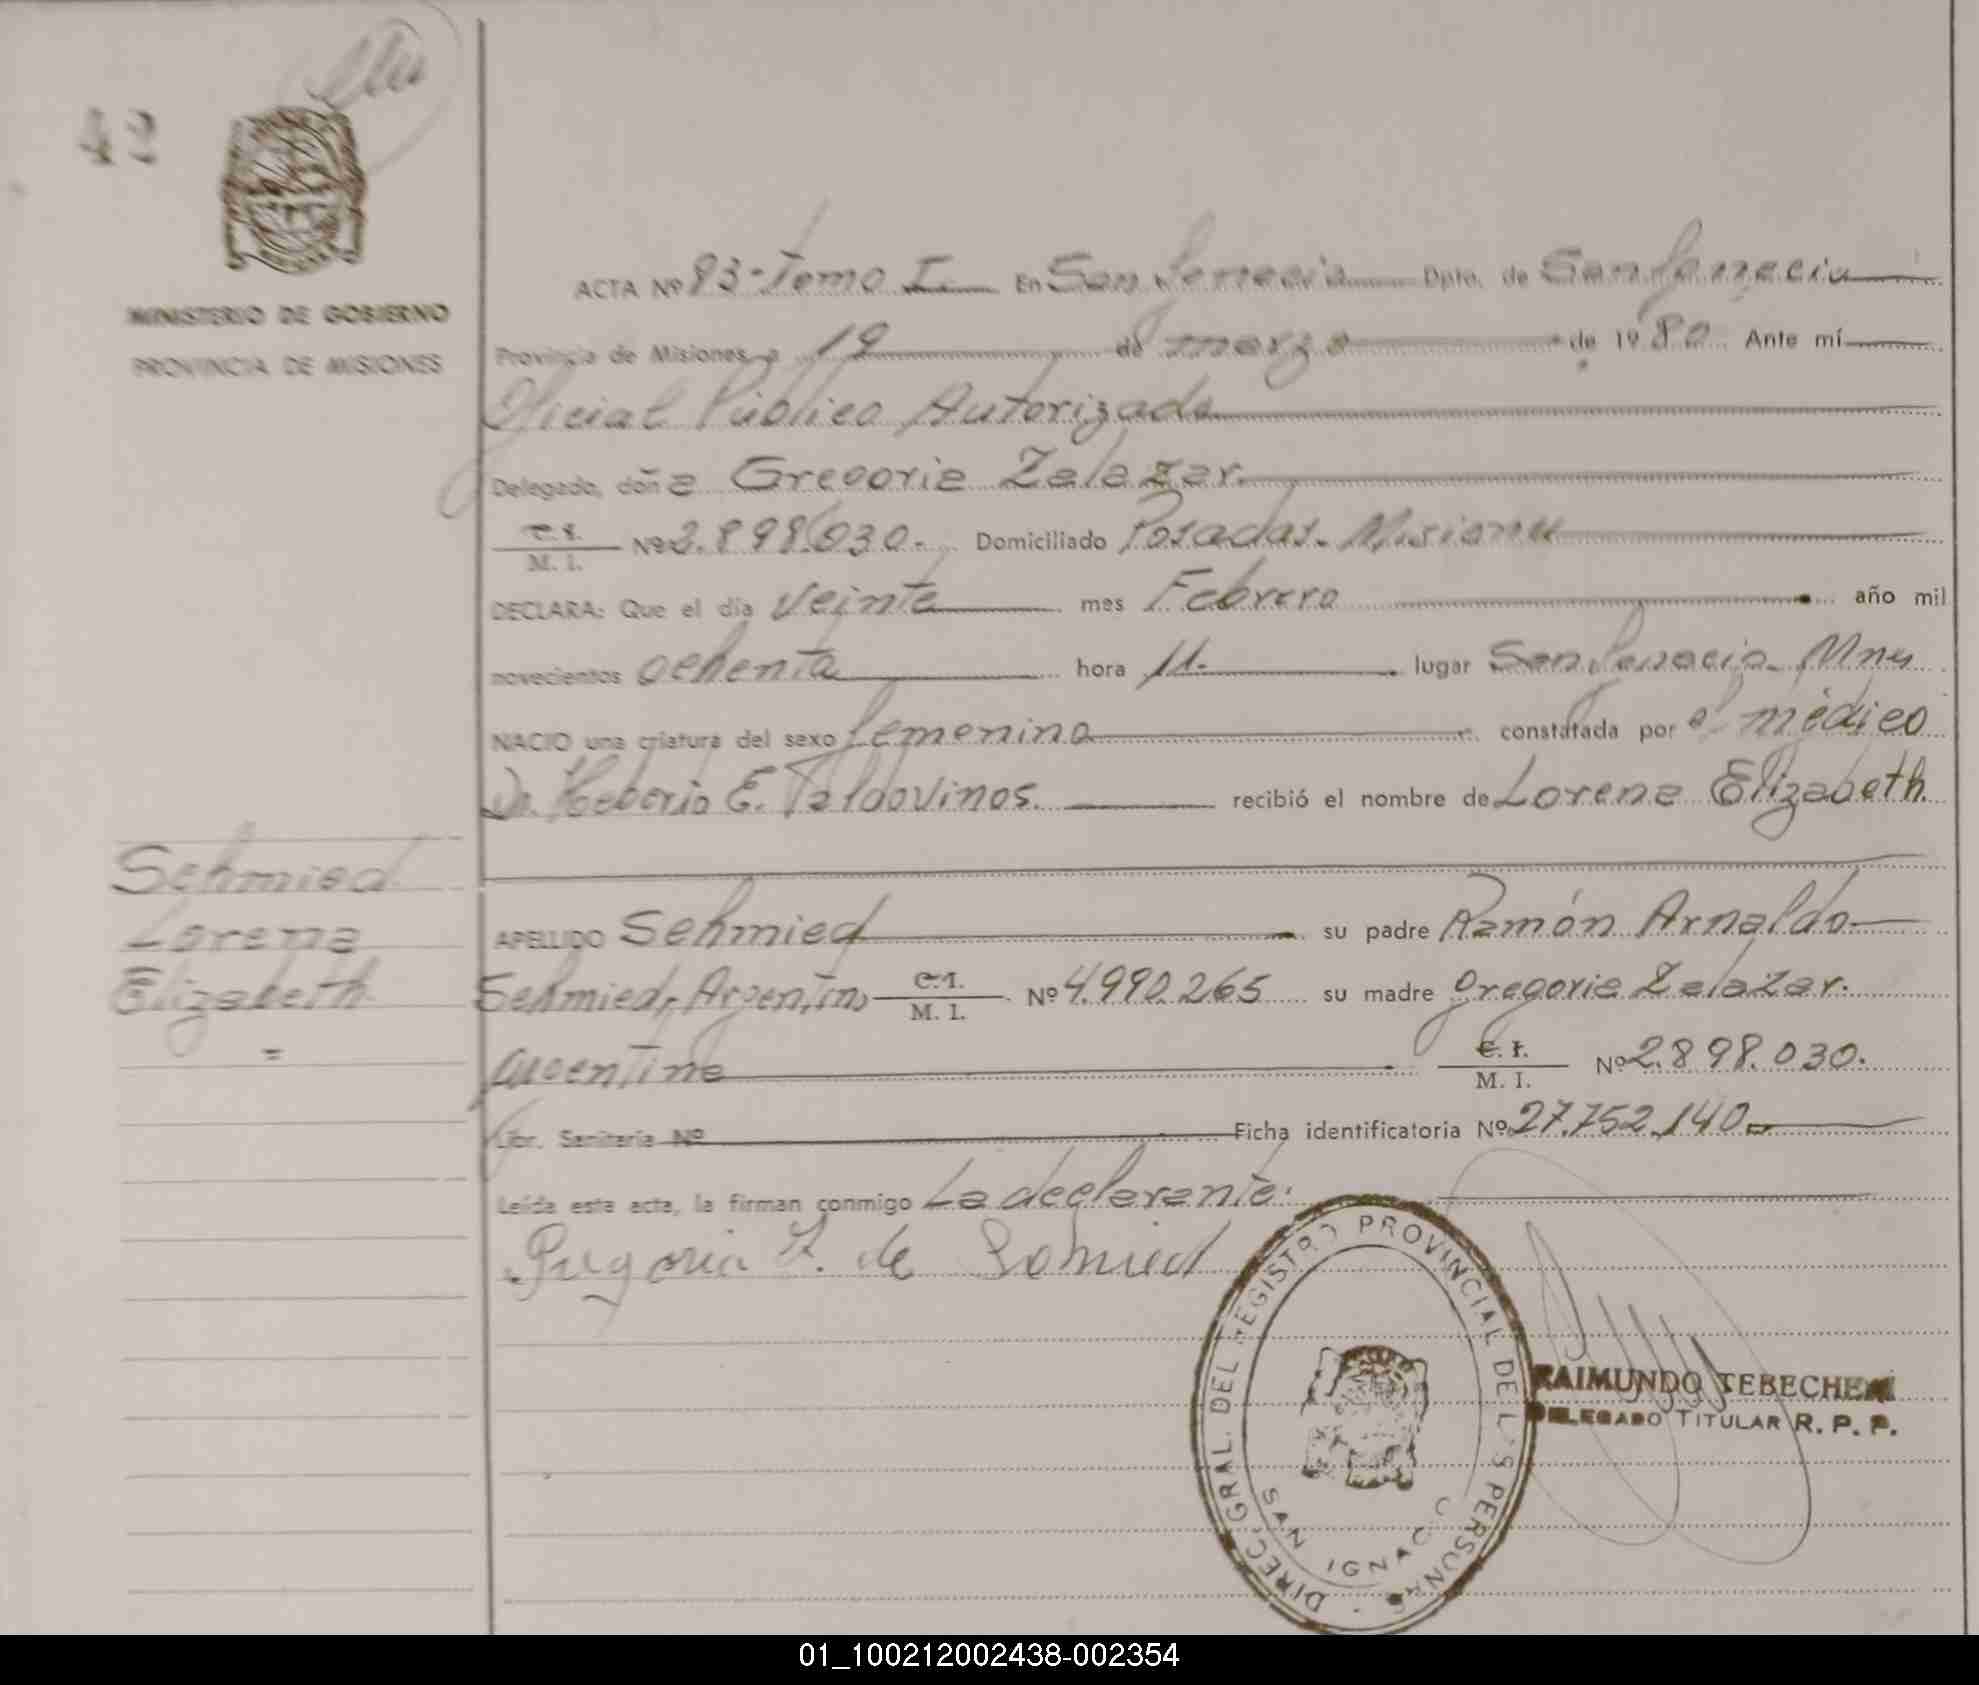 42
MINISTERIO DE GOBIERNO
PROVINCIA DE MISIONES
ACTA Nº 83-Tomo I. En San Ignacio Dpto. de San Ignacio
Provincia de Misiones, a 19 de marzo de 1980. Ante mí
Oficial Público Autorizado
Delegado, doña Gregoria Zalazar.
C. I.
M. I. Nº 2.898.030. Domiciliado Posadas. Misiones
DECLARA: Que el día veinte mes Febrero año mil
novecientos ochenta hora 11. lugar San Ignacio. Mnes
NACIO una criatura del sexo femenino constatada por el médico
Dr. E. Valdovinos. recibió el nombre de Lorena Elizabeth.
Schmied
Lorena
Elizabeth
=
APELLIDO Schmied su padre Ramón Arnaldo
Schmied, Argentino C. I.
M. I. Nº 4.990.265 su madre Gregoria Zalazar.
argentina C. I.
M. I. Nº 2.898.030.
Libr. Sanitaria Nº Ficha identificatoria Nº 27.752.140
Leída esta acta, la firman conmigo La declarante:
Gregoria Z. de Schmied
DIREC. GRAL. DEL REGISTRO PROVINCIAL DE L S PERSONAS
SAN IGNAC
RAIMUNDO TEBECHERI
DELEGADO TITULAR R. P. P.
01_100212002438-002354